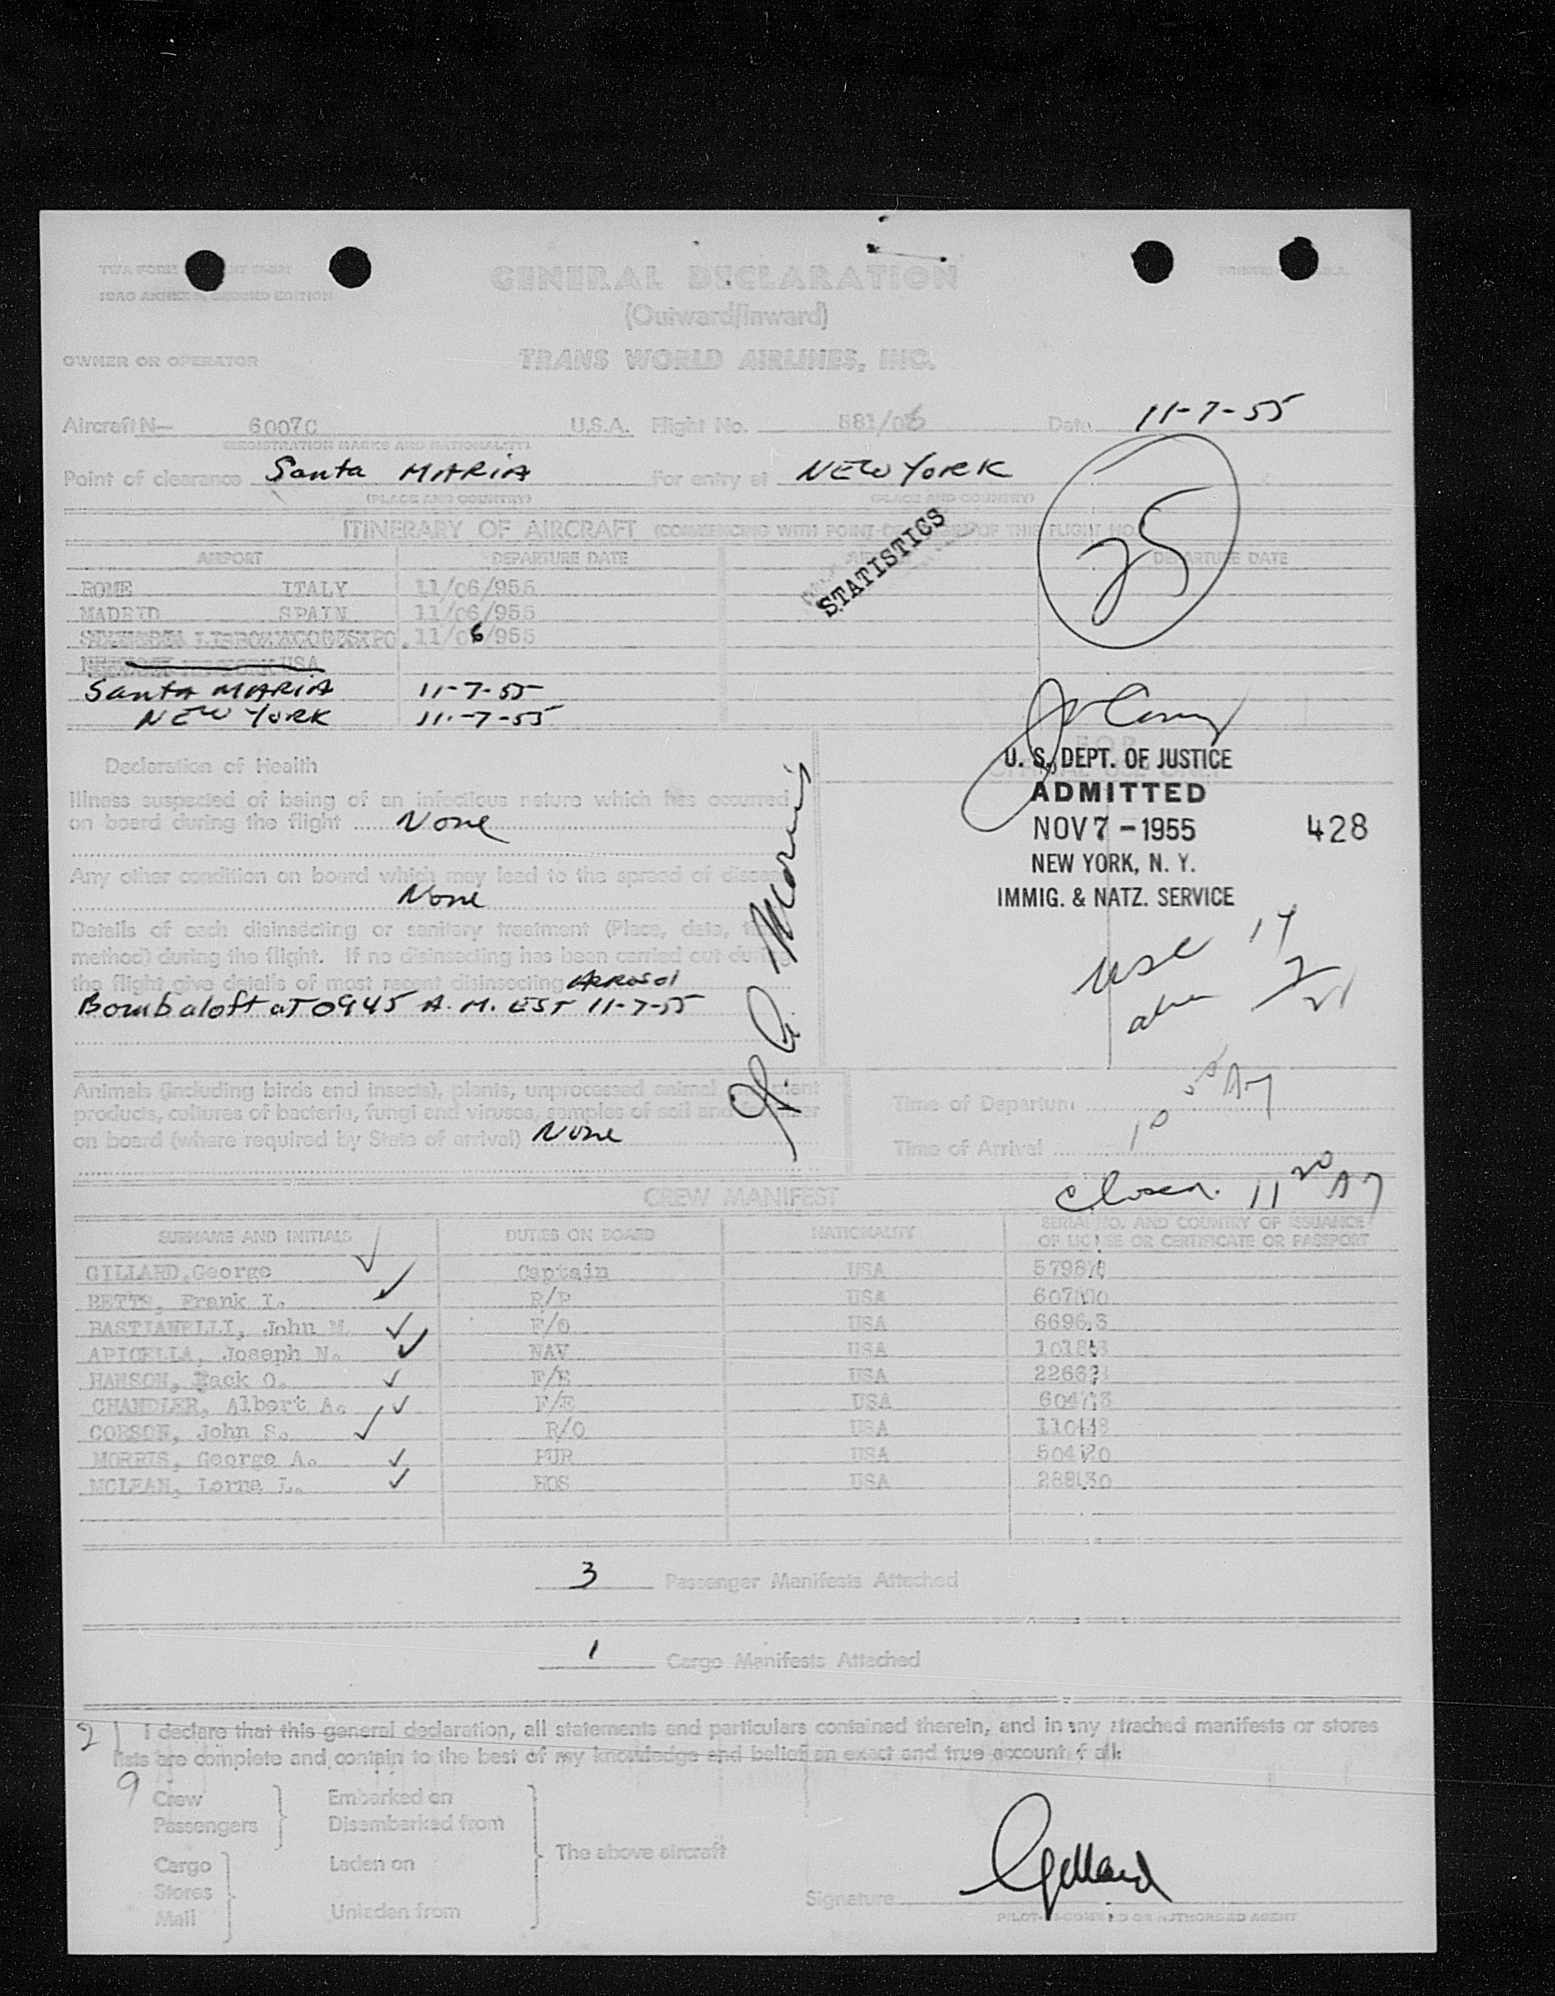 GENERAL DECLARATION
(Outward/Inward)
OWNER OR OPERATOR TRANS WORLD AIRLINES, INC.
Aircraft N— 6007C U.S.A. Flight No. 881/06 Date 11-7-55
(REGISTRATION MARKS AND NATIONALITY)
Point of clearance Santa MARIA For entry at NEW YORK
(PLACE AND COUNTRY) (PLACE AND COUNTRY)
ITINERARY OF AIRCRAFT (COMMENCING WITH POINT OF THIS FLIGHT NO.
STATISTICS
25
AIRPORT DEPARTURE DATE DEPARTURE DATE
ROME ITALY 11/06/955
MADRID SPAIN 11/06/955
11/06/955
USA
Santa MARIA 11-7-55
NEW YORK 11-7-55
Declaration of Health
Illness suspected of being of an infectious nature which has occurred
on board during the flight None
Any other condition on board which may lead to the spread of disease
None
Details of each disinsecting or sanitary treatment (Place, date, time,
method) during the flight. If no disinsecting has been carried out during
the flight give details of most recent disinsecting Aerosol
Bomb aloft at 0945 A.M. EST 11-7-55
FOR
OFFICIAL USE ONLY
U. S. DEPT. OF JUSTICE
ADMITTED
NOV 7 - 1955 428
NEW YORK, N. Y.
IMMIG. & NATZ. SERVICE
usc 14
21
Animals (including birds and insects), plants, unprocessed animal plant
products, cultures of bacteria, fungi and viruses, samples of soil and
on board (where required by State of arrival) None
Time of Departure
Time of Arrival
11 20
CREW MANIFEST
SURNAME AND INITIALS DUTIES ON BOARD NATIONALITY SERIAL NO. AND COUNTRY OF ISSUANCE
OF LICENSE OR CERTIFICATE OR PASSPORT
GILLARD, George Captain USA
BETTS, Frank I. USA
BASTIANELLI, John M. F/O USA
APICELLA, Joseph N. NAV USA
HANSON, Jack O. F/E USA
CHANDLER, Albert A. F/E USA
CORSON, John S. R/O USA
MORRIS, George A. PUR USA
MCLEAN, Lorne L. HOS USA
3 Passenger Manifests Attached
1 Cargo Manifests Attached
21 I declare that this general declaration, all statements and particulars contained therein, and in any attached manifests or stores
lists are complete and contain to the best of my knowledge and belief an exact and true account of all:
9 Crew Embarked on
Passengers Disembarked from
The above aircraft
Cargo Laden on
Stores
Mail Unladen from
Signature Gillard
PILOT-IN-COMMAND OR AUTHORISED AGENT